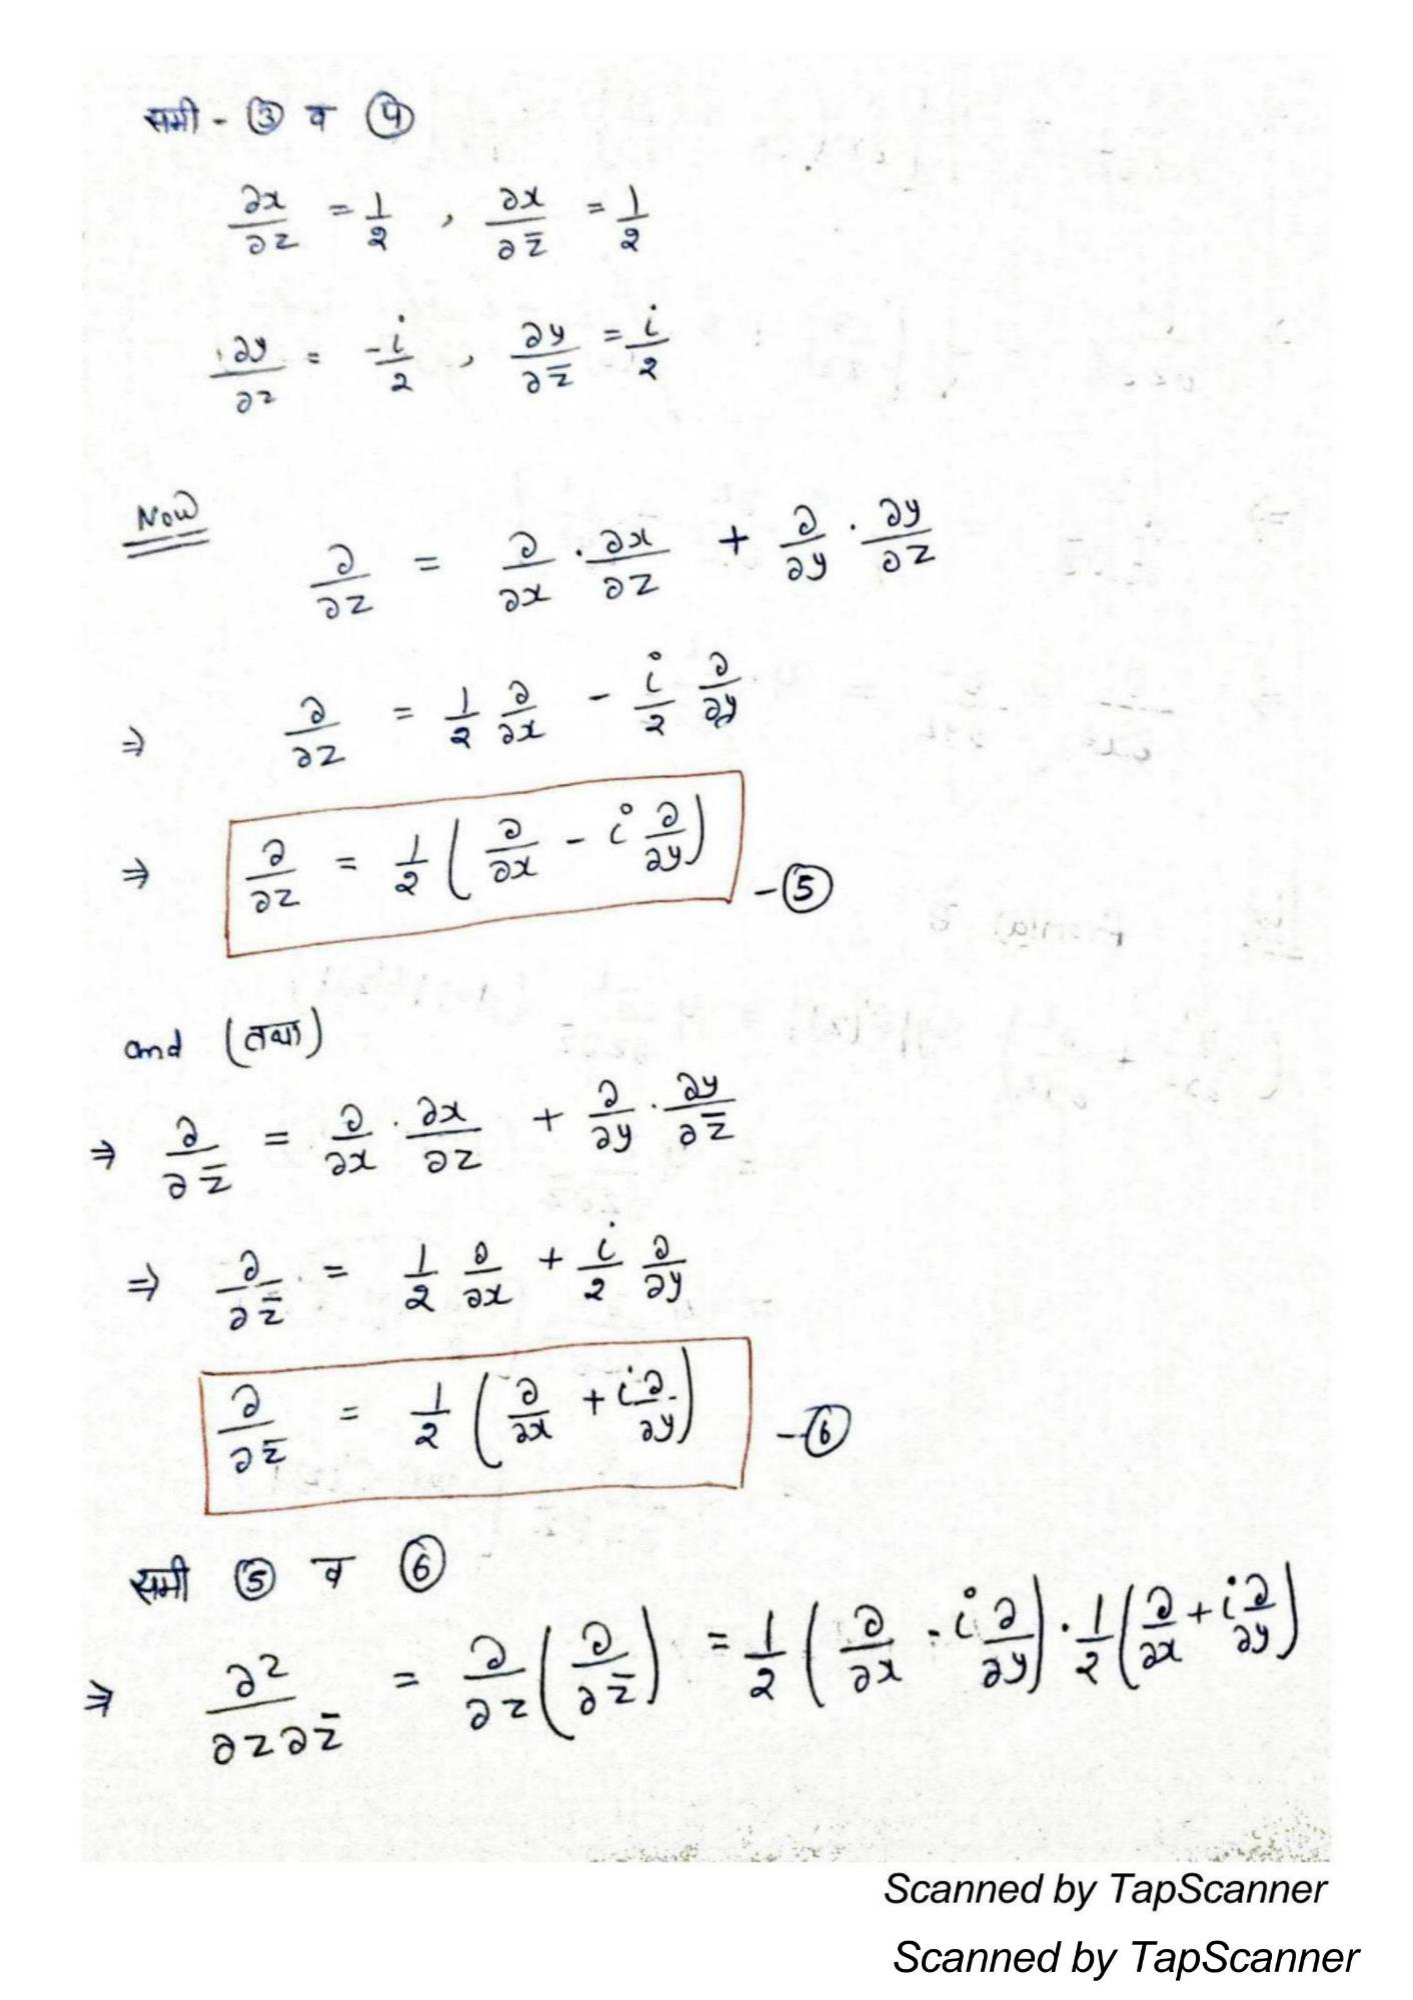 समी - ③ व ④
∂x/∂z = 1/2 , ∂x/∂z̄ = 1/2
∂y/∂z = -i/2 , ∂y/∂z̄ = i/2
Now
∂/∂z = ∂/∂x · ∂x/∂z + ∂/∂y · ∂y/∂z
⇒ ∂/∂z = 1/2 ∂/∂x - i/2 ∂/∂y
⇒ ∂/∂z = 1/2 ( ∂/∂x - i ∂/∂y ) - ⑤
and (तथा)
⇒ ∂/∂z̄ = ∂/∂x · ∂x/∂z + ∂/∂y · ∂y/∂z̄
⇒ ∂/∂z̄ = 1/2 ∂/∂x + i/2 ∂/∂y
∂/∂z̄ = 1/2 ( ∂/∂x + i ∂/∂y ) - ⑥
समी ⑤ व ⑥
⇒ ∂²/∂z∂z̄ = ∂/∂z ( ∂/∂z̄ ) = 1/2 ( ∂/∂x - i ∂/∂y ) · 1/2 ( ∂/∂x + i ∂/∂y )
Scanned by TapScanner
Scanned by TapScanner